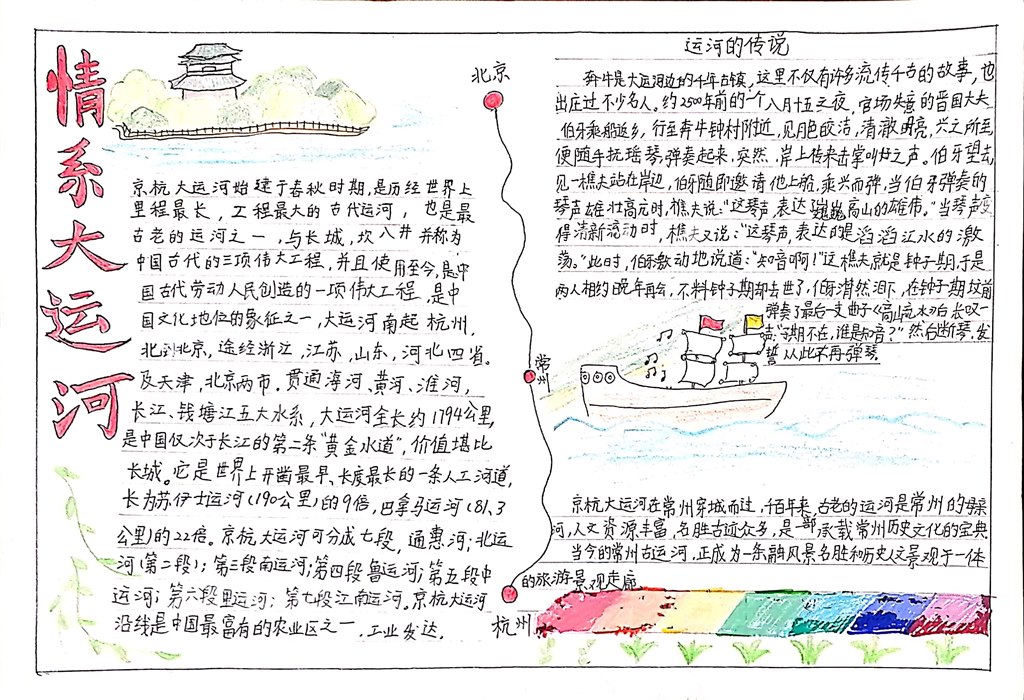 情系大运河
京杭大运河始建于春秋时期,是历经世界上
里程最长,工程最大的古代运河,也是最
古老的运河之一,与长城,坎儿井并称为
中国古代的三项伟大工程,并且使用至今,是中
国古代劳动人民创造的一项伟大工程,是中
国文化地位的象征之一,大运河南起杭州,
北到北京,途经浙江,江苏,山东,河北四省。
及天津,北京两市.贯通海河、黄河、淮河,
长江、钱塘江五大水系,大运河全长约1794公里,
是中国仅次于长江的第二条"黄金水道",价值堪比
长城。它是世界上开凿最早、长度最长的一条人工河道,
长为苏伊士运河(190公里)的9倍,巴拿马运河(81.3
公里)的22倍。京杭大运河可分成七段,通惠河;北运
河(第二段);第三段南运河;第四段鲁运河;第五段中
运河;第六段里运河;第七段江南运河。京杭大运河
沿线是中国最富有的农业区之一,工业发达.
北京
常州
杭州
运河的传说
奔牛是大运河边的千年古镇,这里不仅有许多流传千古的故事,也
出庄过不少名人。约2500年前的一个八月十五之夜,官场失意的晋国大夫
伯牙乘船返乡,行至奔牛钟村附近,见月色皎洁,清澈明亮,兴之所至
便随手抚瑶琴,弹奏起来,突然,岸上传来击掌叫好之声。伯牙望去,
见一樵夫站在岸边,伯牙随即邀请他上船,乘兴而弹,当伯牙弹奏的
琴声雄壮高亢时,樵夫说:"这琴声表达巍巍高山的雄伟。"当琴声变
得清新流动时,樵夫又说:"这琴声,表达的是滔滔江水的激
荡。"此时,伯牙激动地说道:"知音啊!"这樵夫就是钟子期,于是
两人相约晚年再会,不料钟子期却去世了,伯牙潸然泪下,在钟子期坟前
弹奏了最后一支曲子《高山流水》后长叹一
声:"子期不在,谁是知音?"然后断琴,发
誓从此不再弹琴.
京杭大运河在常州穿城而过,千百年来,古老的运河是常州的母亲
河,人文资源丰富,名胜古迹众多,是一部承载常州历史文化的宝典
当今的常州古运河,正成为一条融风景名胜和历史人文景观于一体
的旅游景观走廊